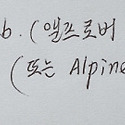 b. (엘프로버
(또는 Alpine